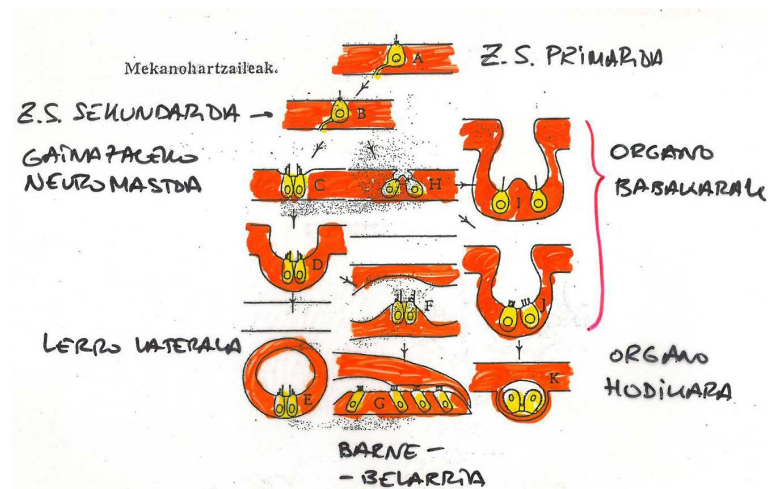 Mekanohartzaileak.
A
Z.S. PRIMARIOA
Z.S. SEKUNDARIOA
B
GAINAZALEKO
NEUROMASTOA
C
H
I
ORGANO
BABAKARAK
D
F
J
LERRO LATERALA
E
G
K
ORGANO
HODIKARA
BARNE-
-BELARRIA